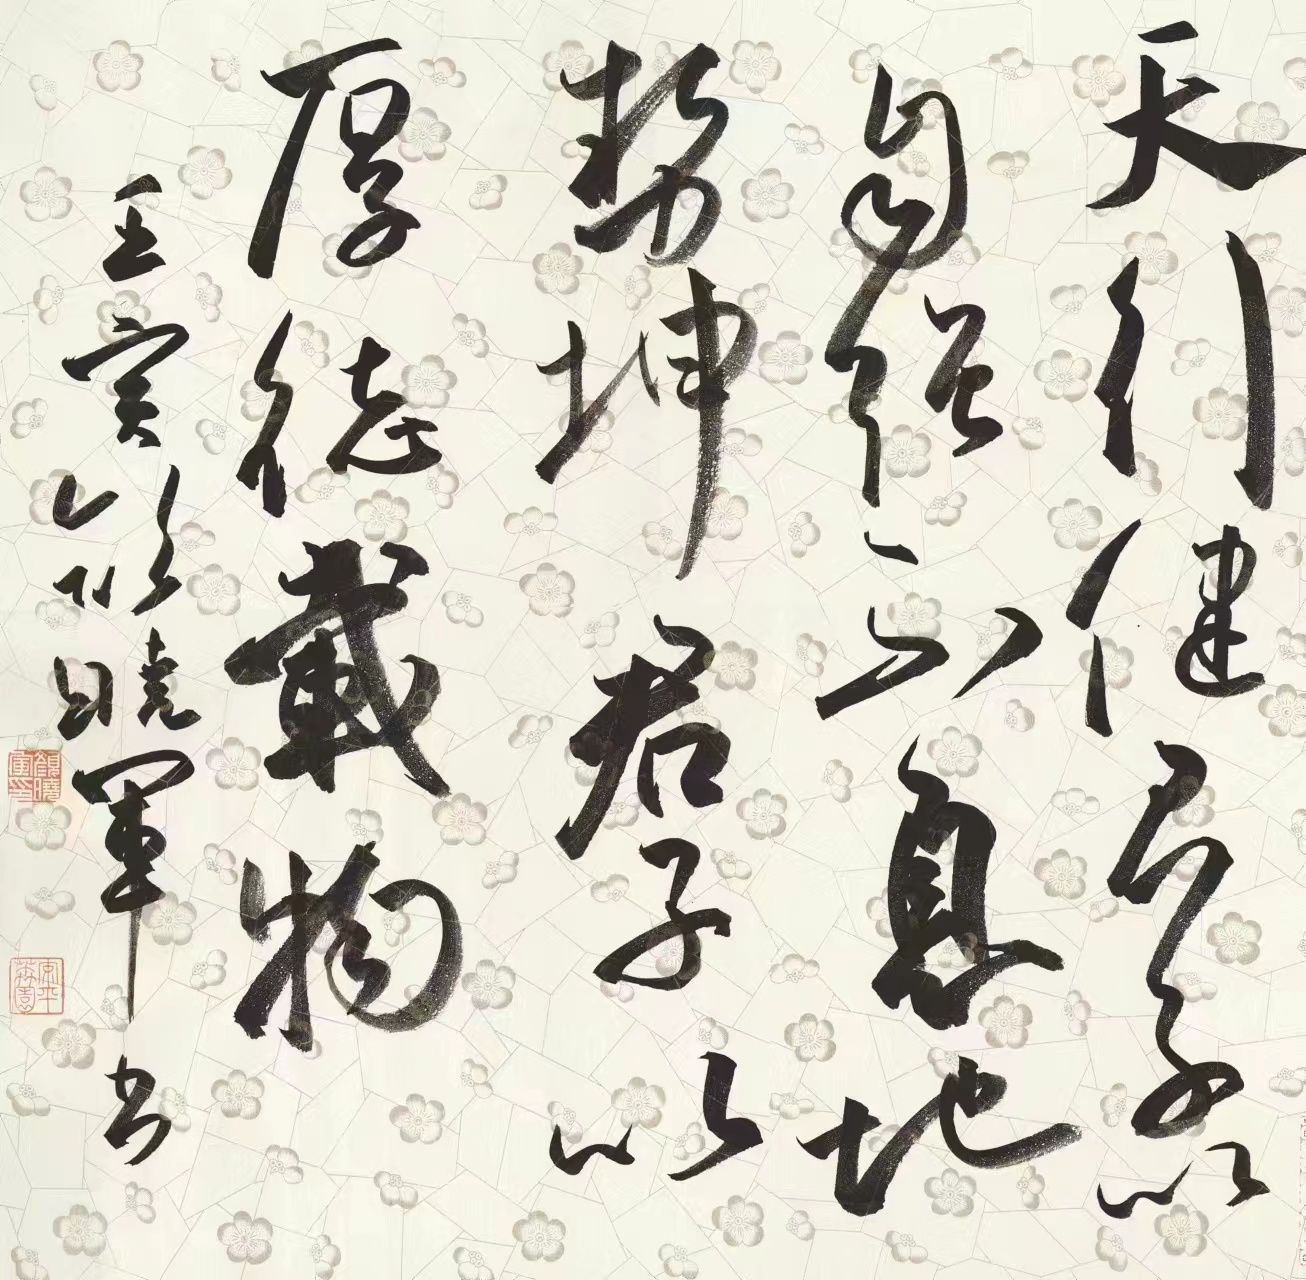 天行健君子以
自强不息地
势坤君子以
厚德载物
壬寅颜晓军书
顏曉軍印